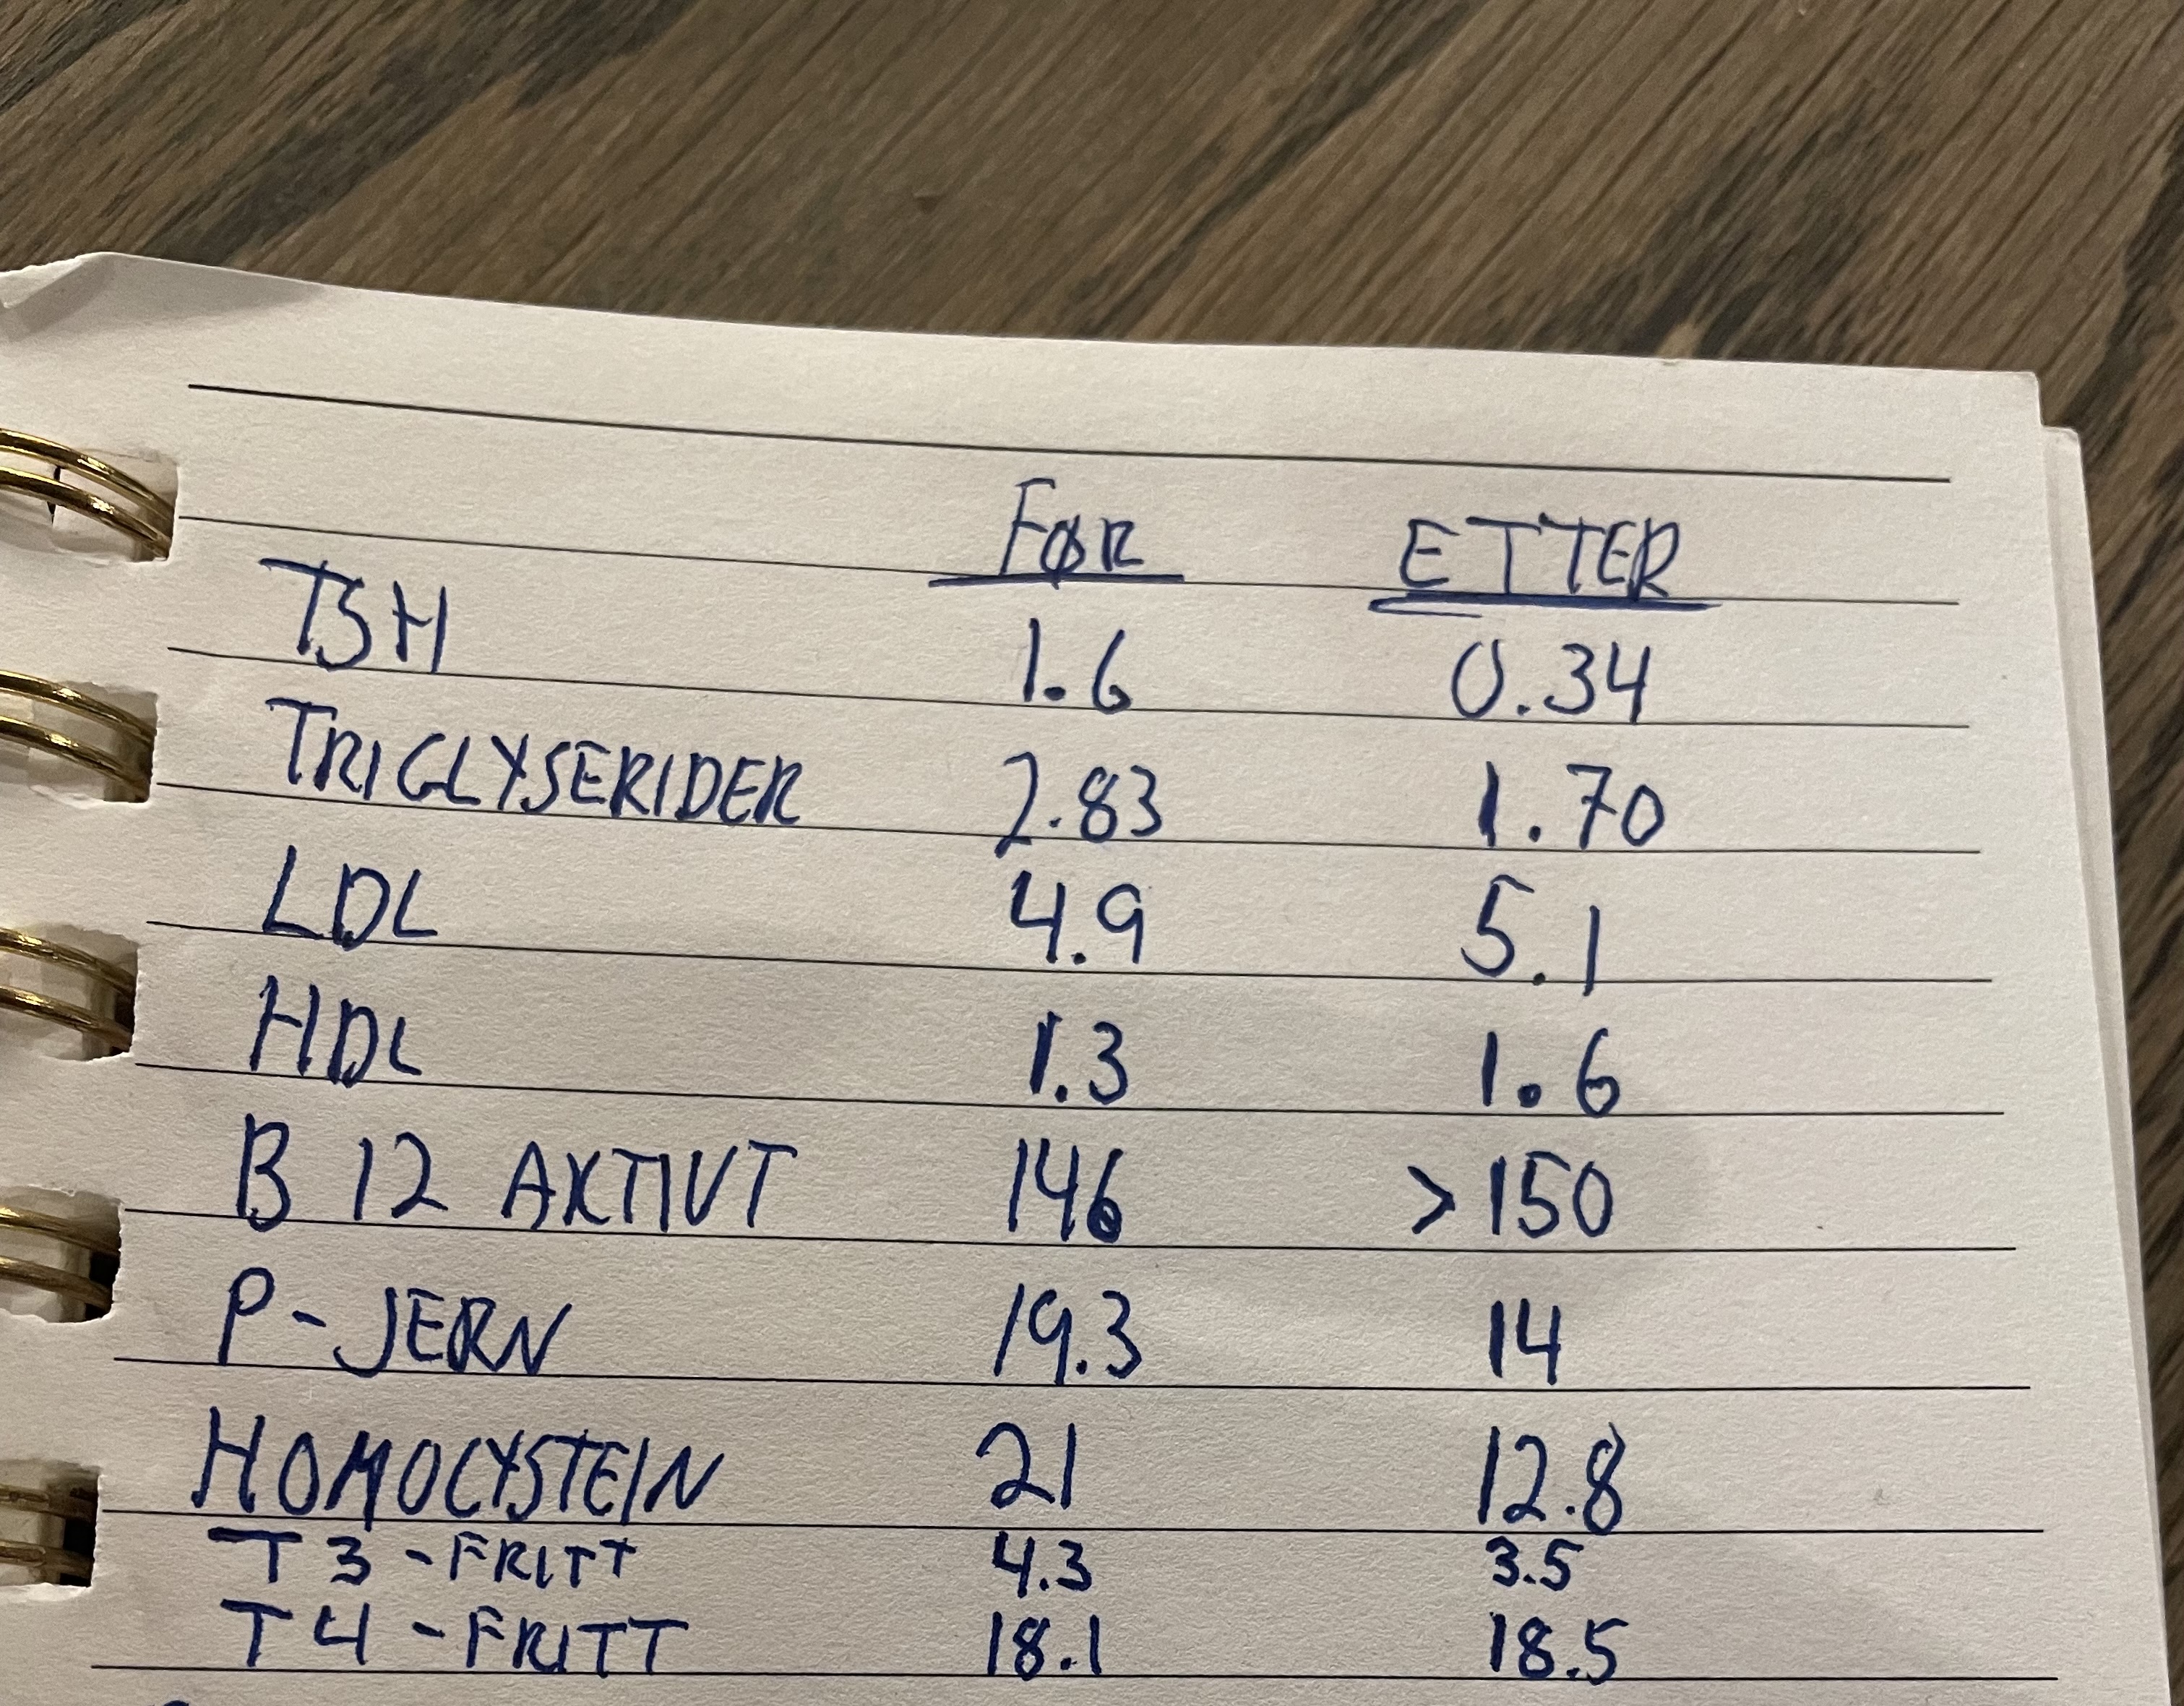 FØR ETTER
TSH 1.6 0.34
TRIGLYSERIDER 2.83 1.70
LDL 4.9 5.1
HDL 1.3 1.6
B 12 AKTIVT 146 >150
P-JERN 19.3 14
HOMOCYSTEIN 21 12.8
T3-FRITT 4.3 3.5
T4-FRITT 18.1 18.5